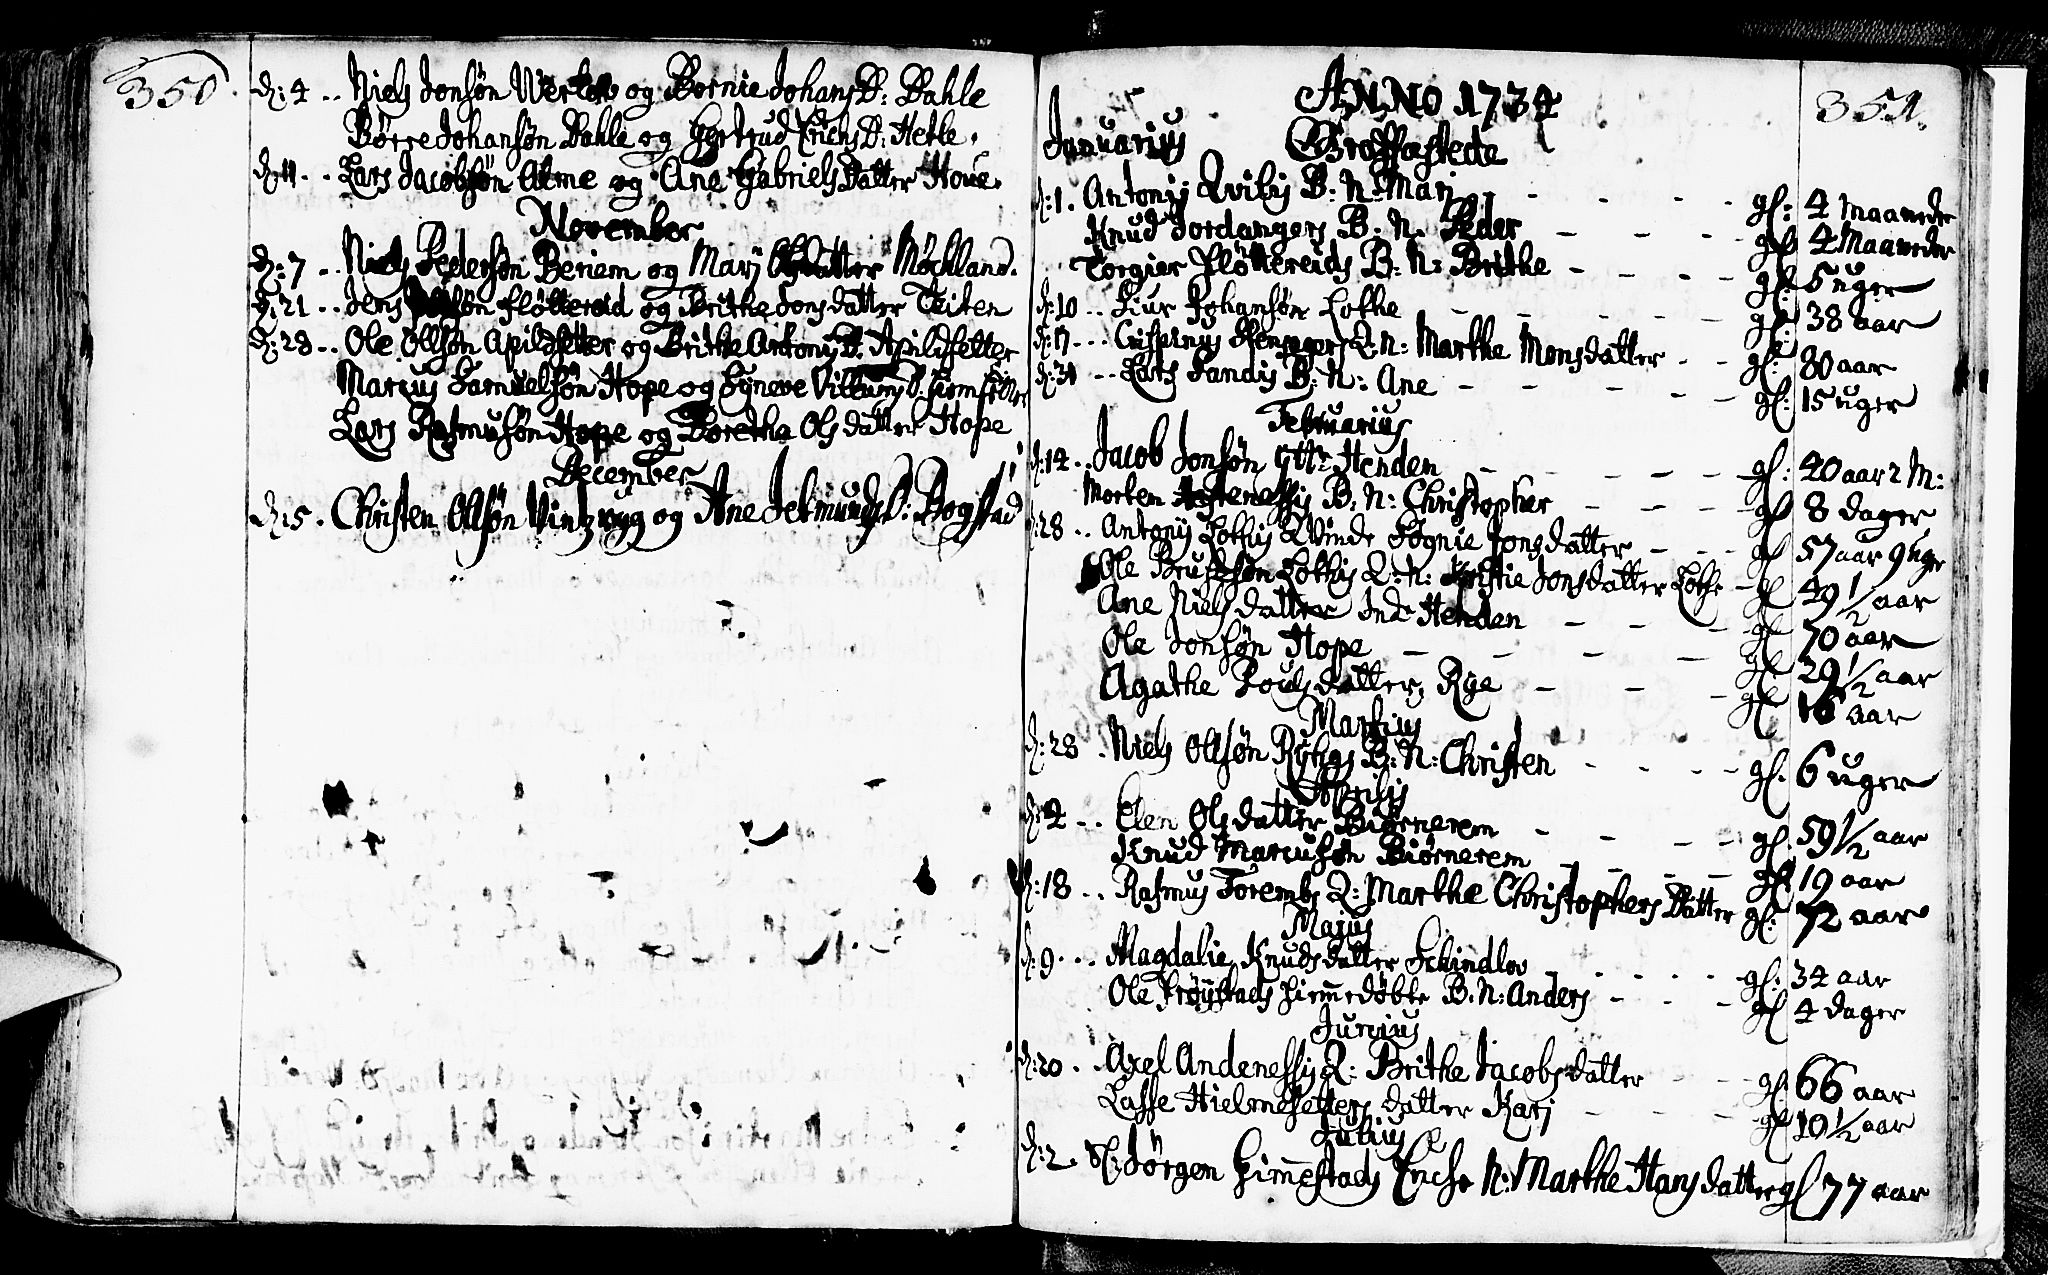 350.
d: 4 .. Niels Jonsøn Werket og Bornie Johans D: Dahle
Børre Johansøn Dahle og Gertrud Erichs D: Hetle.
d: 11 .. Lars Jacobsøn Alme og Ane Gabriels Datter Houe.
November
d: 7 .. Niels Pedersøn Beriem og Marj Olsdatter Möckland.
d: 21 .. Jens fløttereid og Brithe Jonsdatter Teiten
d: 28 .. Ole Ollsøn Apildsetter og Brithe Antonij D: Apildsetter
Marcus Samuelsøn Hope og Syneve Villums D:
Lars Rasmusøn Hope og Dorethe Olsdatter Hope
December
d: 5. Christen Ollsøn Vintzryg og Ane Jetmunds D: Bogstad
351.
ANNO 1734
Januarius Graffæstede
d: 1. Antonij Qvilis B: N: Marj - - - - gl: 4 Maaneder
Knud Jordangers B: N: Peder - - - gl: 4 Maaneder
Torgier fløttereids B: N: Brithe - - - gl: 5 uger
d: 10 .. Siur Johansøn Lothe - - - - gl: 38 aar
d: 17 ... Crispinus Q: N: Marthe Monsdatter - - gl: 80 aar
d: 31 .. Lars Sandis B: N: Ane - - - - gl: 15 uger
Februarius
d: 14 .. Jacob Jonsøn ytt: Henden - - - - gl: 40 aar 2 M:
Morten B: N: Christopher - - - gl 8 dager
d: 28 .. Antonij Lothis Qvinde Sögnie Jonsdatter - - - gl 57 aar 9 uger
Ole Brusesøn Lothis Q: N: Kristie Jonsdatter Lothe - gl 49 1/2 aar
Ane Nielsdatter Ind: Henden - - - gl 70 aar
Ole Jonsøn Hope - - - - gl 29 1/2 aar
Agathe Poulsdatter, Rye - - - gl 16 aar
Martius
d: 28 . Niels Ollsøn Rÿhgs B: N: Christen - - - - gl. 6 uger
Aprilis
d: 4 .. Elen Olsdatter Biørnerem - - - - gl. 59 1/2 aar
Knud Marcusøn Biörnerem - - - - gl 19 aar
d: 18 .. Rasmus Torembs Q: Marthe Christophersdatter gl: 72 aar
Majus
d: 9 ... Magdalie Knudsdatter Schindlou - - - - gl: 34 aar
Ole frøÿstads hiemedøbte B: N: Anders - - - gl 4 dager
Junius
d: 20 .. Axel Andenessis Q: Brithe Jacobsdatter - - - gl 66 aar
Lasse Hielmesetters datter Karj - - - - gl 10 1/2 aar
Julius
d: 2 . Sl: Jörgen Gimestads Encke N: Marthe Hansdatter gl 77 aar